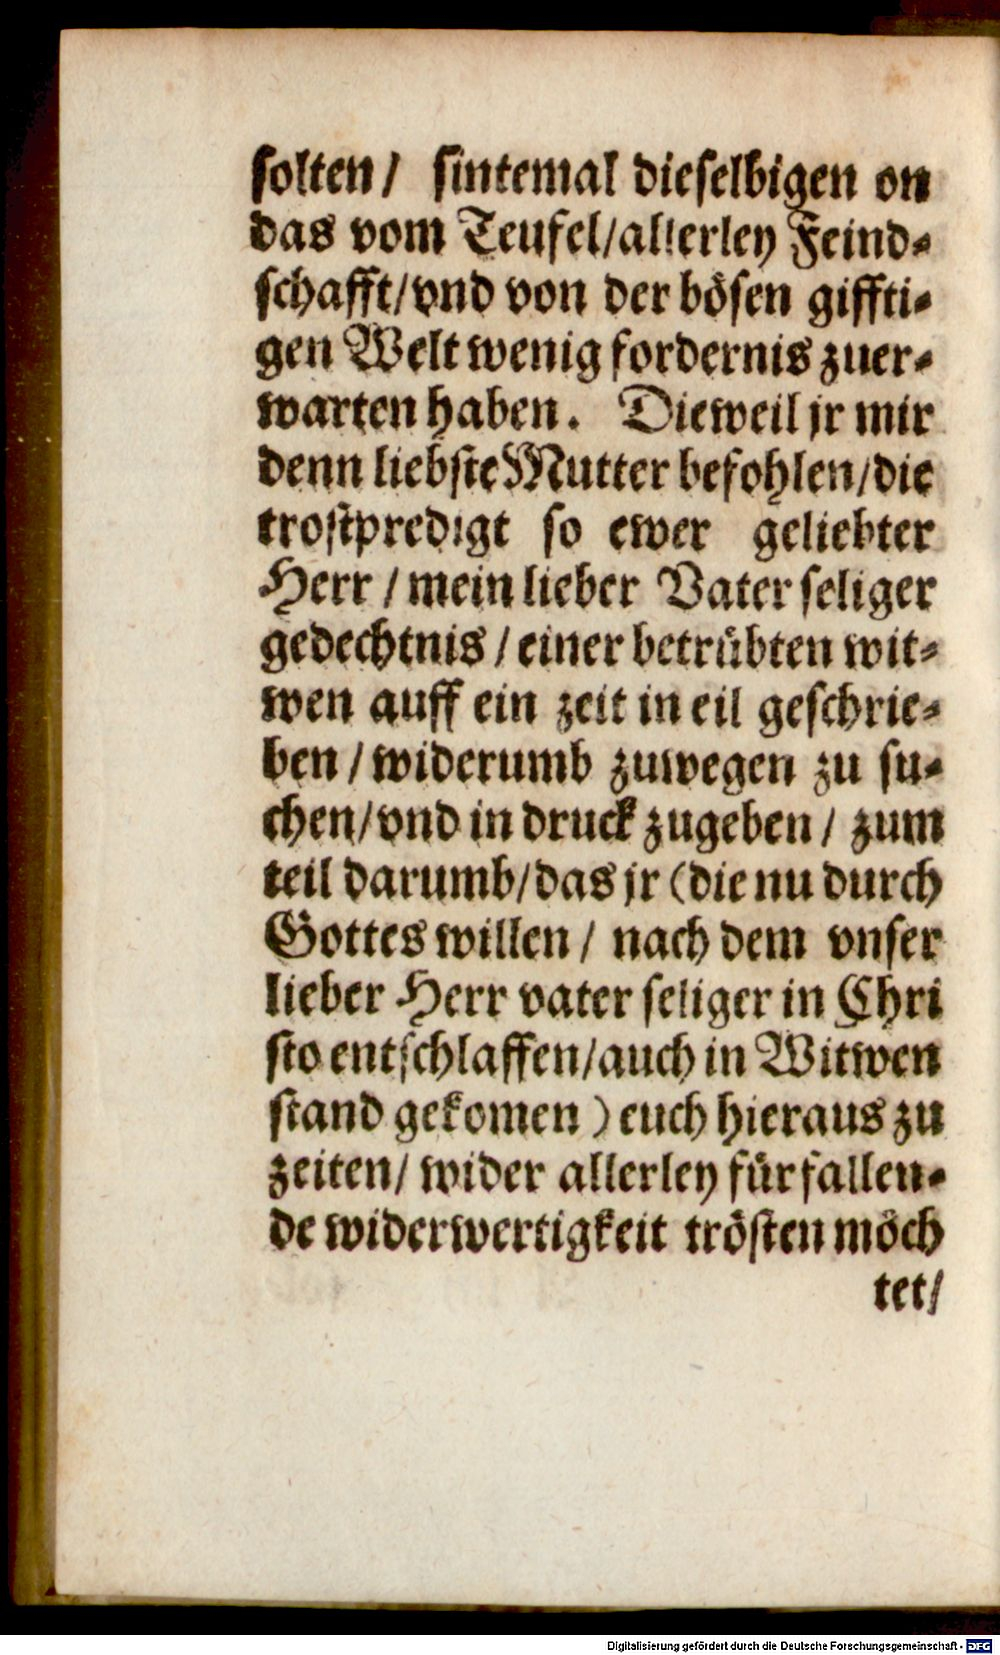 solten/ sintemal dieselbigen on
das vom Teufel/allerley Feind-
schafft/vnd von der bösen giffti-
gen Welt wenig fordernis zuer-
warten haben. Dieweil jr mir
denn liebste Mutter befohlen/die
trostpredigt so ewer geliebter
Herr/mein lieber Vater seliger
gedechtnis/einer betrübten wit-
wen auff ein zeit in eil geschrie-
ben/widerumb zuwegen zu su-
chen/vnd in druck zugeben/ zum
teil darumb/das jr (die nu durch
Gottes willen/ nach dem vnser
lieber Herr vater seliger in Chri
sto entschlaffen/auch in Witwen
stand gekomen) euch hieraus zu
zeiten/ wider allerley fürfallen-
de widerwertigkeit trösten möch
tet/
Digitalisierung gefördert durch die Deutsche Forschungsgemeinschaft - DFG